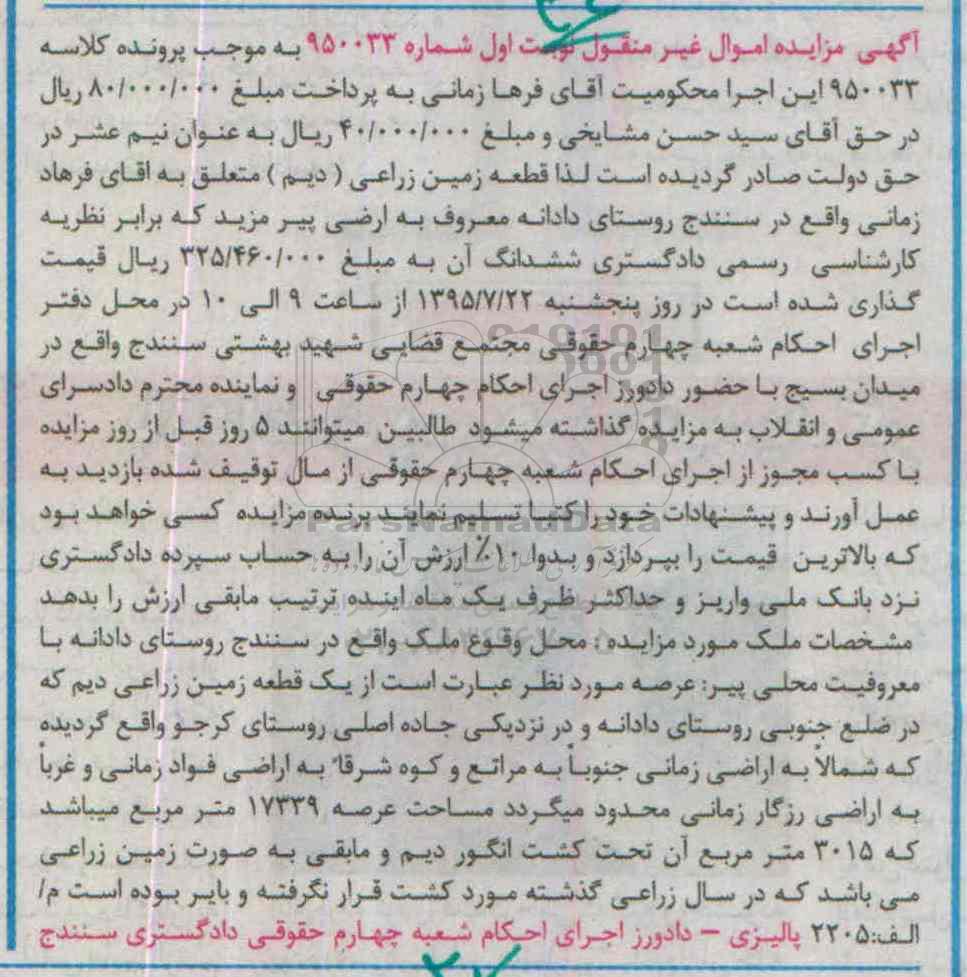 آگهی مزایده اموال غیر منقول نوبت اول شماره ۹۵۰۰۳۳ به موجب پرونده کلاسه
۹۵۰۰۳۳ این اجرا محکومیت آقای فرها زمانی به پرداخت مبلغ ۸۰/۰۰۰/۰۰۰ ریال
در حق آقای سید حسن مشایخی و مبلغ ۴۰/۰۰۰/۰۰۰ ریال به عنوان نیم عشر در
حق دولت صادر گردیده است لذا قطعه زمین زراعی ( دیم ) متعلق به اقای فرهاد
زمانی واقع در سنندج روستای دادانه معروف به ارضی پیر مزید که برابر نظریه
کارشناسی رسمی دادگستری ششدانگ آن به مبلغ ۳۲۵/۴۶۰/۰۰۰ ریال قیمت
گذاری شده است در روز پنجشنبه ۱۳۹۵/۷/۲۲ از ساعت ۹ الی ۱۰ در محل دفتر
اجرای احکام شعبه چهارم حقوقی مجتمع قضایی شهید بهشتی سنندج واقع در
میدان بسیج با حضور دادورز اجرای احکام چهارم حقوقی و نماینده محترم دادسرای
عمومی و انقلاب به مزایده گذاشته میشود طالبین میتوانند ۵ روز قبل از روز مزایده
با کسب مجوز از اجرای احکام شعبه چهارم حقوقی از مال توقیف شده بازدید به
عمل آورند و پیشنهادات خود را کتبا تسلیم نمایند برنده مزایده کسی خواهد بود
که بالاترین قیمت را بپردازد و بدوا ۱۰٪ ارزش آن را به حساب سپرده دادگستری
نزد بانک ملی واریز و حداکثر ظرف یک ماه اینده ترتیب مابقی ارزش را بدهد
مشخصات ملک مورد مزایده : محل وقوع ملک واقع در سنندج روستای دادانه با
معروفیت محلی پیر: عرصه مورد نظر عبارت است از یک قطعه زمین زراعی دیم که
در ضلع جنوبی روستای دادانه و در نزدیکی جاده اصلی روستای کرجو واقع گردیده
که شمالاً به اراضی زمانی جنوباً به مراتع و کوه شرقاً به اراضی فواد زمانی و غرباً
به اراضی رزگار زمانی محدود میگردد مساحت عرصه ۱۷۳۳۹ متر مربع میباشد
که ۳۰۱۵ متر مربع آن تحت کشت انگور دیم و مابقی به صورت زمین زراعی
می باشد که در سال زراعی گذشته مورد کشت قرار نگرفته و بایر بوده است م/
الف:۲۲۰۵ پالیزی – دادورز اجرای احکام شعبه چهارم حقوقی دادگستری سنندج
ParsNamadData